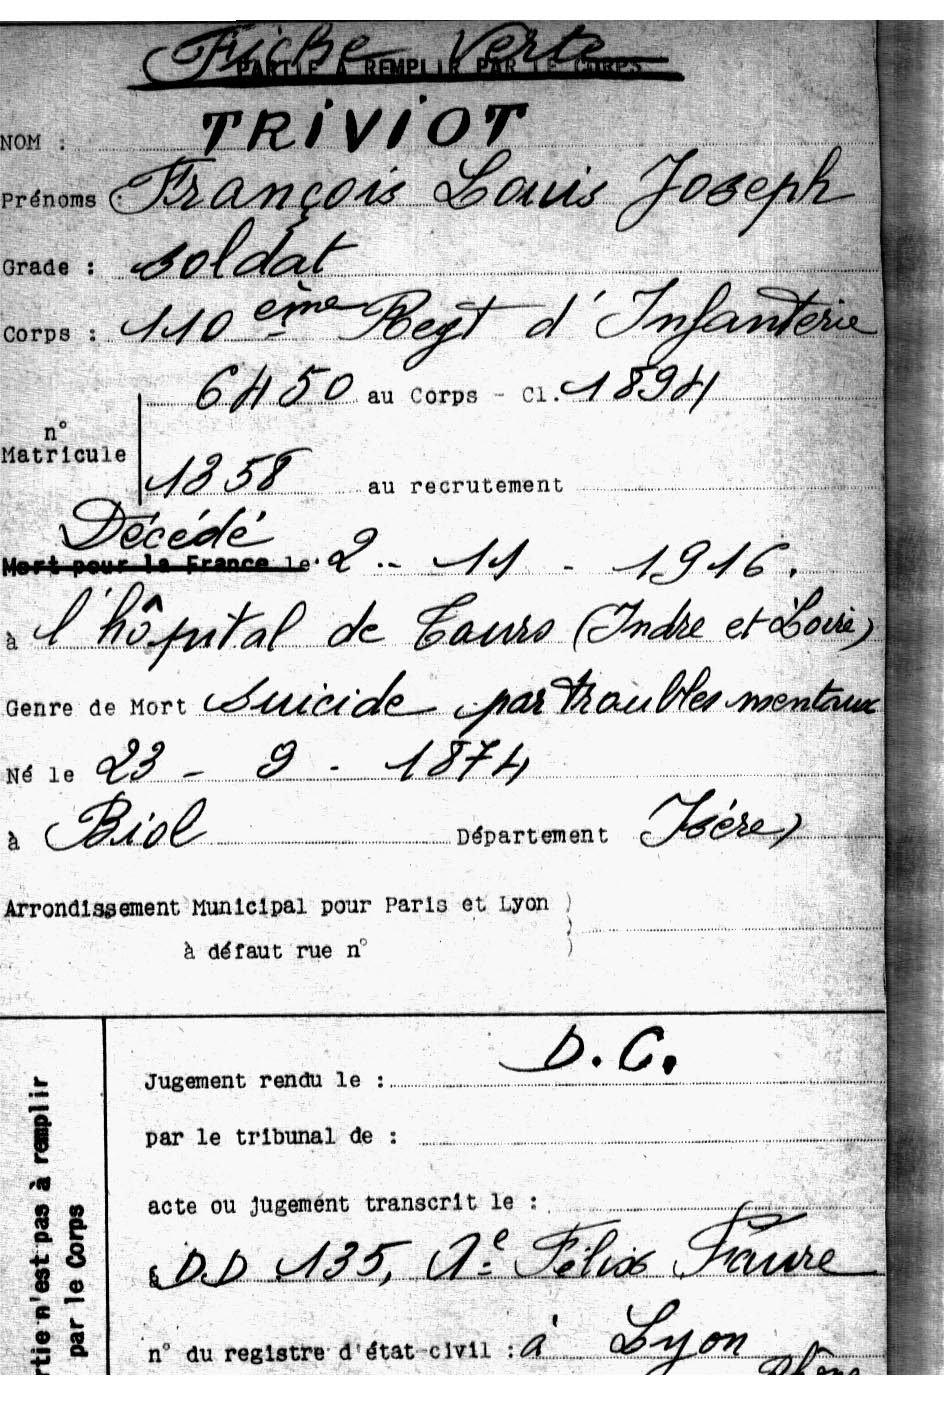 Fiche Verte
PARTIE À REMPLIR PAR LE CORPS
NOM : TRIVIOT
Prénoms : François Louis Joseph
Grade : soldat
Corps : 110 ème Regt d'Infanterie
6450 au Corps - Cl. 1894
n°
Matricule
1358 au recrutement
Décédé
Mort pour la France le 2 - 11 - 1916.
à l'hôpital de Tours (Indre et Loire)
Genre de Mort suicide par troubles mentaux
Né le 23 - 9 - 1874
à Biol Département Isère)
Arrondissement Municipal pour Paris et Lyon )
à défaut rue n° )
D.C.
Jugement rendu le :
par le tribunal de :
acte ou jugement transcrit le :
à D.D 135, Félix Faure
n° du registre d'état civil : à Lyon
Rhône
rtie n'est pas à remplir
par le Corps